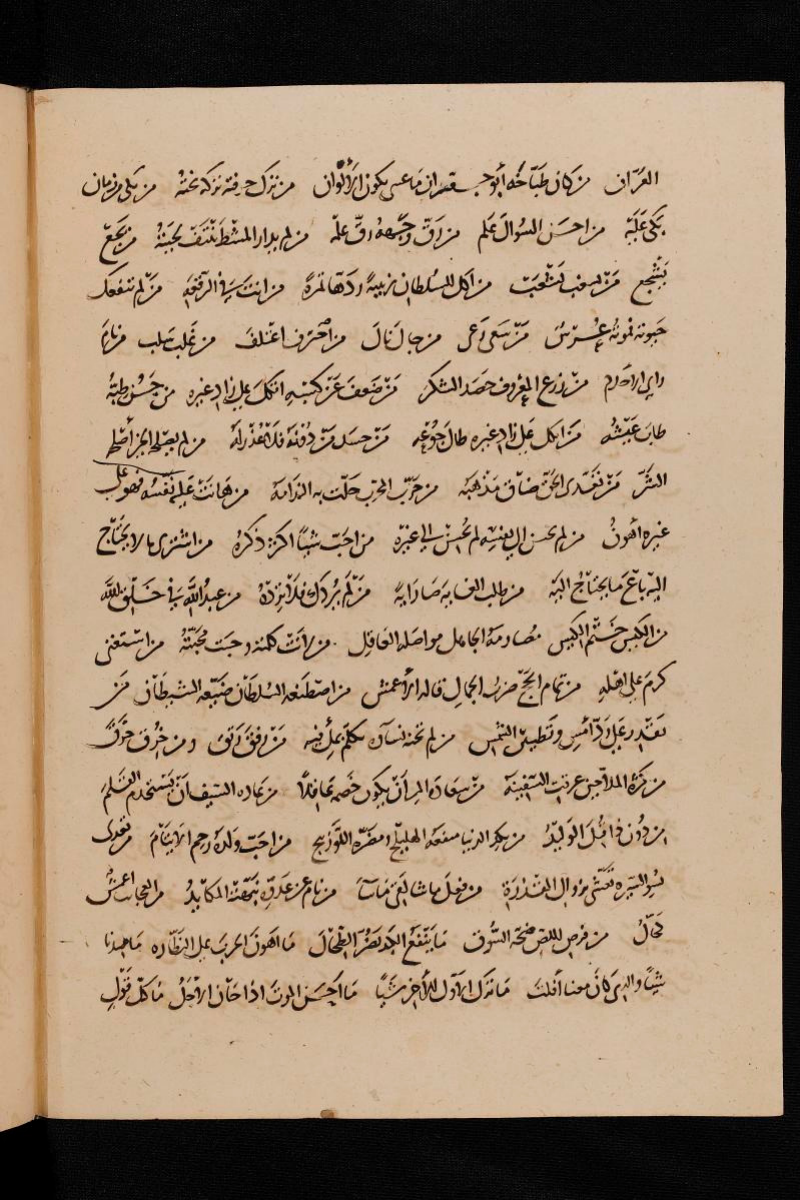 العزان من كان طباخه أبو جـعـران ما عسى يكون الألوان من ترك حرفته تركه بخته من بكى من زمان
بكى عليه من احسن السوال علم من رق وجهه رق علمه من لم يدار المشط ينتف لحيته من تجمع
يشجع من اكل للسلطان زبيبة ردها تمرة من انت في الرقعة من لم تنفعك
حيوته فموته عرس من سعى رعى من جال نال من احترف اعتلف من غلب سلب من نام
راى الاحلام من زرع المعروف حصد الشكر من ضعف عن كسبه اتكل على زاد غيره من حسن ظنه
طاب عيشه من اتكل على زاد غيره طال جوعه من حسد من دونه فلا عذر له من لم يصلحه الخير أصلحه
الشر من تعدى الحق ضاق مذهبه من جرب المجرب حلت به الندامة من هانت عليه نفسه فهو على
غيره أهون من لم يحسن الى نفسه لم يحسن الى غيره من احب شيئا اكثر ذكره من اشترى ما لا يحتاج
اليه باع ما يحتاج اليه من طلب الغاية صار اية من لم يردك فلا ترده من عبد الله في خلق الله
من الكيس ختم الكيس مصارمة الجاهل مواصلة العاقل من لانت كلمته وجبت محبته من استغنى
كرم على اهله من تمام الحج ضرب الجمال قاله الأعمش من اصطنعه السلطان ضيعه الشيطان من
يقدر على رد امس وتطيين الشمس من لم تخنه نساؤه تكلم بملء فيه من رفق رتق ومن خرق خرق
من كثرة الملاحين غرقت السفينة من سعادة المرء أن يكون خصمه عاقلا من عادة السيف أن يستخدم القلم
من دون ذا قتل الوليد من نكد الدنيا منفعة الهليلج ومضرة اللوزينج من احب ولده رحم الايتام من تغدى
بسو السيرة تعشى بزوال القدرة من فعل ما شا لقى ما سا من نام عن عدوه نبهته المكايد من العجائب اعمش
كحال من فرص اللص ضجة السوق ما ينتفع الكبد يضر الطحال ما اهون الحرب على النظارة ما اصبنا
شيئا والذي كان معنا أفلت ما ترك الاول للآخر شيئا ما احسن الموت اذا حان الاجل ما كل قول